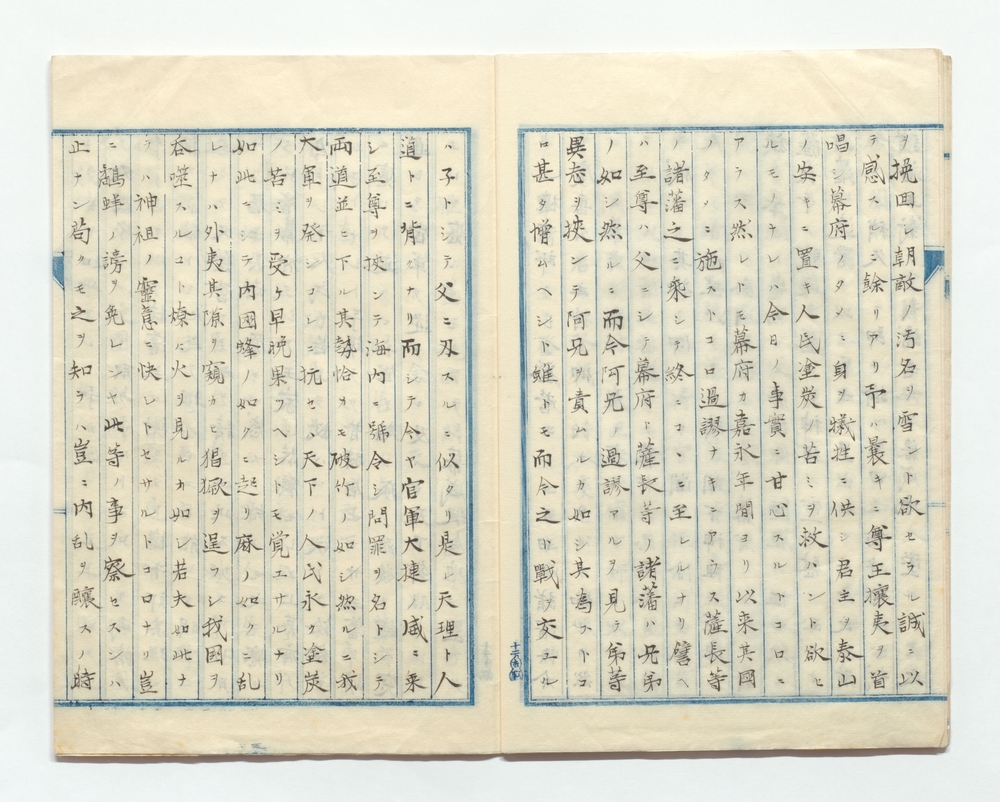 ヲ挽回シ朝敵ノ汚名ヲ雪ント欲セラル誠ニ以
テ感スルニ餘リアリ予ハ曩キニ尊王攘夷ヲ首
唱シ幕府ノタメニ身ヲ犠牲ニ供シ君主ヲ泰山
ノ安キニ置キ人民塗炭ノ苦ミヲ救ハント欲セ
ルモノナレハ今日ノ事實ニ甘心スルトコロニ
アラス然レトモ幕府カ嘉永年間ヨリ以来其国
ノタメニ施ストコロ過謬ナキニアラス薩長等
ノ諸藩之ニ乗シテ終ニコヽニ至レルナリ譬ヘ
ハ至尊ハ父ニシテ幕府ト薩長等ノ諸藩ハ兄弟
ノ如シ然ルニ而今阿兄ノ過謬アルヲ見テ弟等
異志ヲ挾ンテ阿兄ヲ責ムルカ如シ其為ストコ
ロ甚タ憎ムヘシト雖トモ而今之ト戰ヲ交ユル
ハ子トシテ父ニ刃スルニ似タリ是レ天理ト人
道トニ背クナリ而シテ今ヤ官軍大捷ノ威ニ乗
シ至尊ヲ挾ンテ海内ニ號令シ問罪ヲ名トシテ
両道並ニ下ル其勢恰カモ破竹ノ如シ然ルニ我
大軍ヲ発シコレニ抗セハ天下ノ人民永ク塗炭
ノ苦ミヲ受ケ早晩果フヘシトモ覚エサルナリ
如此ニシテ内國蜂ノ如クニ起リ麻ノ如クニ乱
レナハ外夷其隙ヲ窺カヒ猖獗ヲ逞フシ我国ヲ
呑噬スルコト燎ニ火ヲ見ルカ如シ若夫如此ナ
ラハ神祖ノ靈意ニ快レトセサルトコロナリ豈
ニ鷸蚌ノ謗ヲ免レンヤ此等ノ事ヲ察セスンハ
止ナン苟クモ之ヲ知ラハ豈ニ内乱ヲ釀スノ時